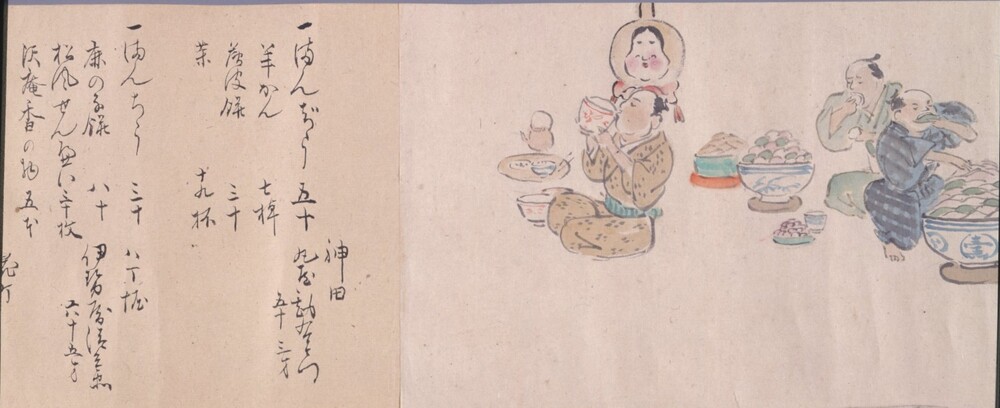 神田
一まんぢう 五十 丸屋勘右衛門
羊かん 七棹 五十三才
薄皮餅 三十
茶 十九杯
一まんぢう 三十 八丁堀
鹿の子餅 八十 伊勢屋清兵衛
松風せんべい三十枚 六十五才
沢庵香の物 五本